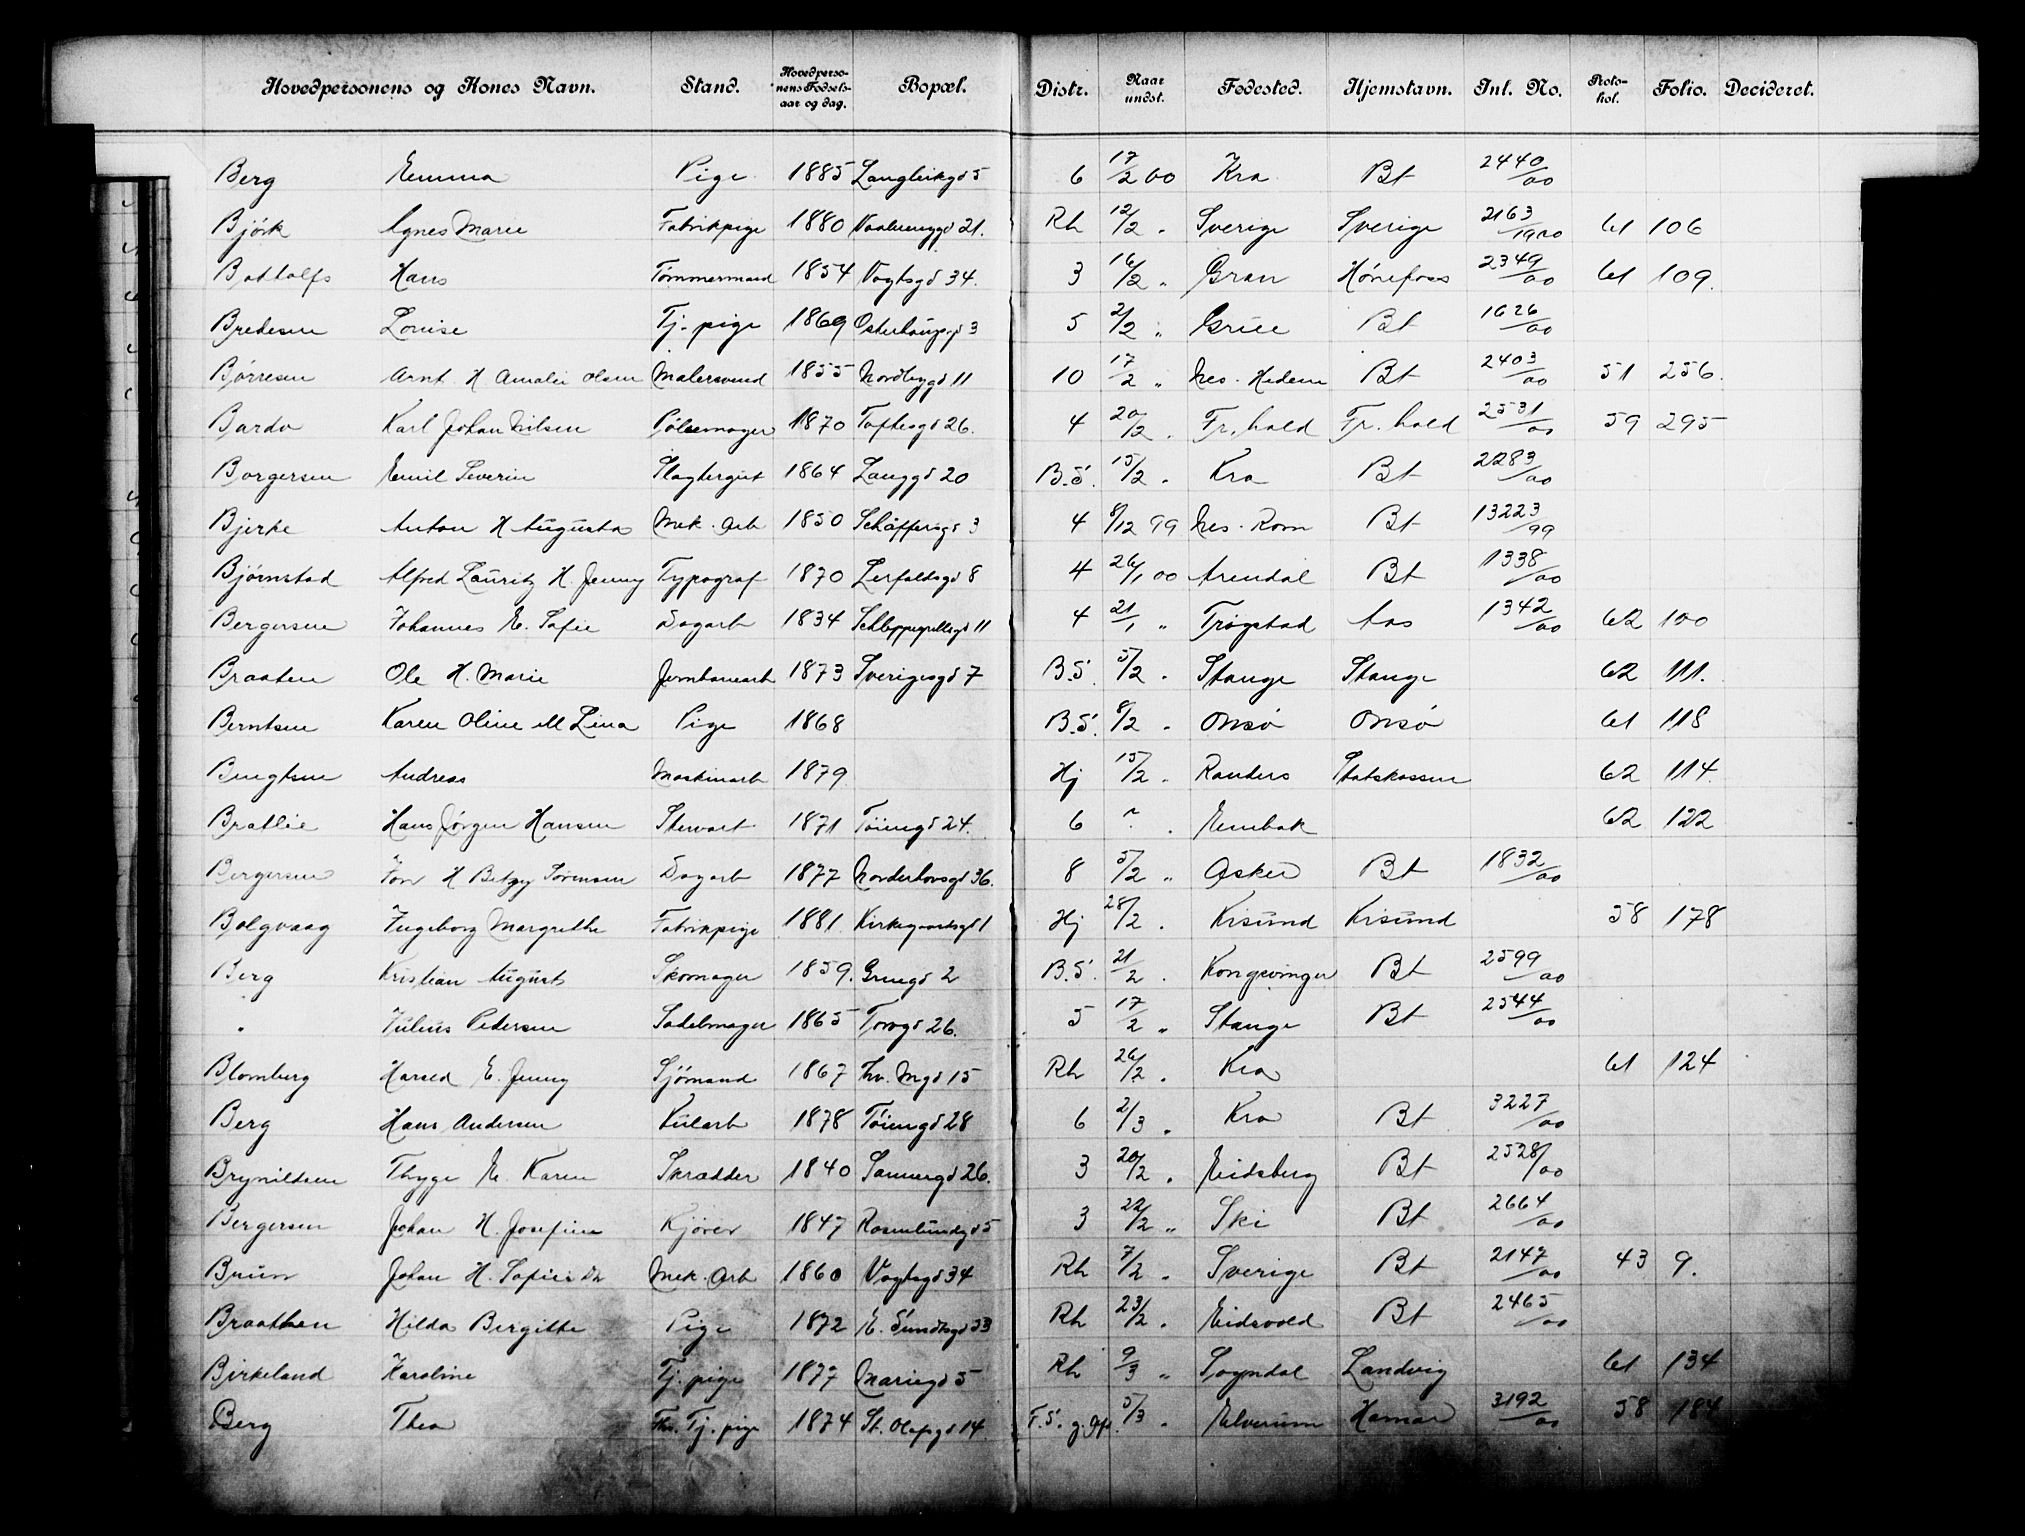 Hovedpersonens og Kones Navn. Stand. Hovedpersonens Fødselsaar og dag. Bopæl. Distr. Naar undst. Fødested. Hjemstavn. Inl. No. Protokol. Folio. Decideret.
Berg Emma Pige 1885 Langleikgd 5 6 17/2 00 Kra Bt 2440/00
Bjørk Agnes Marie Fabrikpige 1880 Vaalerenggd 21. Rh 12/2 " Sverige Sverige 2163/1900 61 106
Bottolfs Hans Tømmermand 1854 Vogtsgd 34. 3 16/2 " Gran Hønefoss 2349/00 61 109.
Bredesen Louise Tj. pige 1869 Osterhausgd 3 5 2/2 " Grue Bt 1626/00
Børresen Arnt H Amalie Olsen Malersvend 1855 Nordbygd 11 10 17/2 " Nes. Hedem Bt 2403/00 51 256.
Bardo Karl Johan Nilsen Pølsemager 1870 Toftesgd 26. 4 20/2 " Fr. hald Fr. hald 2531/00 59 295
Borgersen Emil Severin Slagtergut 1864 Langgd 20 B.S. 15/2 " Kra Bt 2283/00
Bjerke Anton H Augusta Mek. Arb 1850 Schäffersgd 3 4 8/12 99 Nes. Rom Bt 13223/99
Bjørnstad Alfred Lauritz H. Jenny Typograf 1870 Zerfaldsgd 8 4 26/1 00 Arendal Bt 1338/00
Bergersen Johannes E. Sofie Dagarb 1834 Schleppegrellsgd 11 4 21/1 " Trøgstad Aas 1342/00 62 100
Braaten Ole H. Marie Jernbanearb 1873 Sverigesgd 7 B.S. 5/2 " Stange Stange 62 111.
Berntsen Karen Oline M Lina Pige 1868 B.S. 8/2 " Onsø Onsø 61 118
Bengtsen Andreas Maskinarb 1879. Hj 15/2 " Randers Statskassen 62 114.
Bratlie Hans Jørgen Hansen Stervart 1871 Tøiengd 24. 6 " Enebak 62 122
Bergersen Ivar H Betzy Sørensen Dagarb 1877 Norderhovsgd 36. 8 5/2 " Asker Bt 1832/00
Bolgvaag Ingeborg Margrethe Fabrikpige 1881. Kirkegaardsgd 1 Hj 28/2 " Krisund Krisund 58 178
Berg Kristian August Skomager 1859. Gruegd 2 B.S. 21/2 " Kongsvinger Bt 2599/00
" Julius Pedersen Sadelmager 1865 Torvgd 26. 5 17/2 " Stange Bt 2544/00
Blomberg Harald E. Jenny Sjømand 1867 Thv. Mgd 15 Rh 26/2 " Kra 61 124
Berg Hans Andersen Kularb 1878 Tøiengd 28 6 2/3 " Kra Bt 3227/00
Brynildsen Thyge E. Karen Skrædder 1840 Sannergd 26. 3 20/2 " Eidsberg Bt 2528/00
Bergersen Johan H. Josefine Kjører 1847 Rosenlundgd 5 3 22/2 " Ski Bt 2664/00
Bruun Johan H. Sofie Mek. Arb 1860 Vogtsgd 34 Rh 7/2 " Sverige Bt 2147/00 43 9.
Braathen Hilda Bergitte Pige 1872 E. Sundtsgd 33 Rh 23/2 " Eidsvold Bt 2465/00
Birkeland Karoline Tj. pige 1877 Mariegd 5 Rh 9/3 " Sogndal Landvig 61 134
Berg Thea Tj. pige 1874 St. Olafsgd 14 F.S. 5/3 " Elverum Hamar 3192/00 58 184